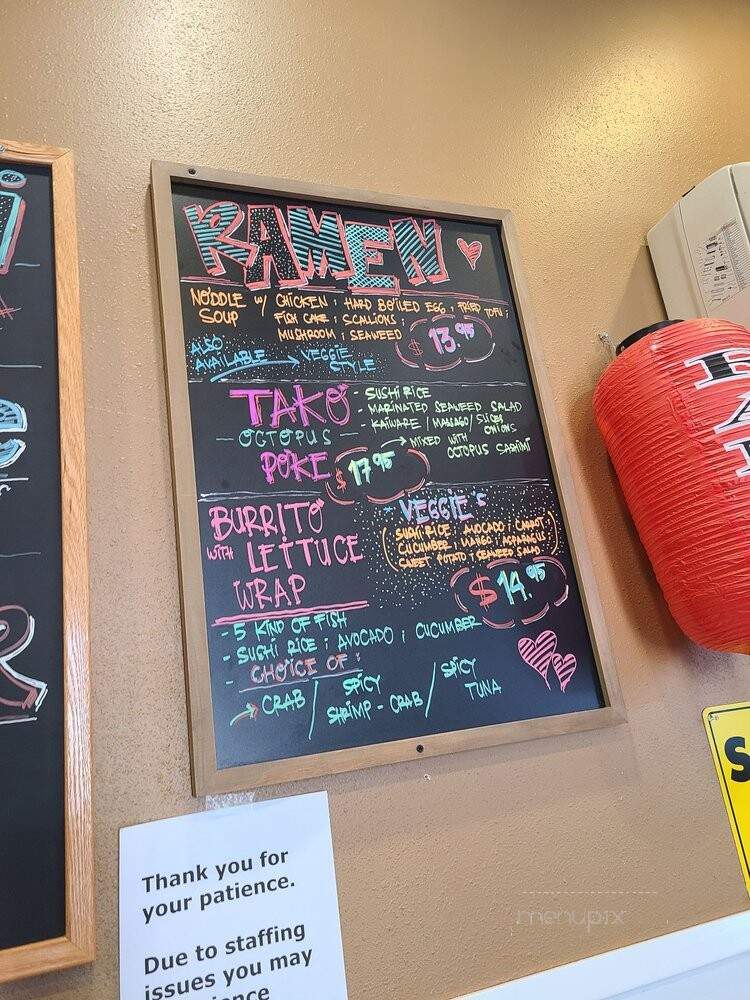 RAMEN
NOODLE w/ CHICKEN ; HARD BOILED EGG ; FRIED TOFU ;
SOUP FISH CAKE ; SCALLIONS ;
MUSHROOM ; SEAWEED
$ 13.95
ALSO
AVAILABLE → VEGGIE
STYLE
TAKO
- OCTOPUS -
POKE
- SUSHI RICE
- MARINATED SEAWEED SALAD
- KAIWARE / MASAGO / SLICED
ONIONS
→ MIXED WITH
OCTOPUS SASHIMI
$ 17.95
BURRITO
WITH LETTUCE
WRAP
* VEGGIE'S
(SUSHI RICE AVOCADO ; CARROT ;
CUCUMBER ; MANGO ; ASPARAGUS ;
SWEET POTATO ; SEAWEED SALAD)
$ 14.95
- 5 KIND OF FISH
- SUSHI RICE ; AVOCADO ; CUCUMBER
- CHOICE OF :
→ CRAB / SPICY
SHRIMP - CRAB / SPICY
TUNA
Thank you for
your patience.
Due to staffing
issues you may
menupix